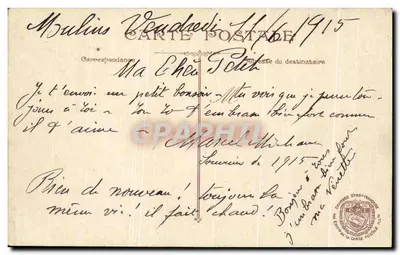 Moulins Vendredi 11/6/1915
CARTE POSTALE
Correspondance
du destinataire
Ma Chéri Petite
Je t'envoi un petit bonsoir - Tu vois que je pense tou-
jours à toi - Zo Zo t'embrasse bien fort comme
il t'aime - Marcel
Souvenir de 1915
Rien de nouveau! toujours la
même vie! il fait chaud!
Bonjour à tous
j'embrasse bien fort
ma